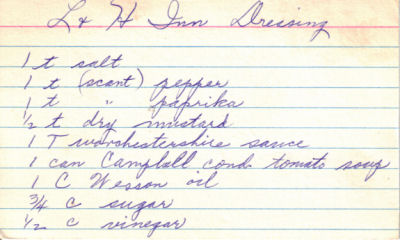 L & H Inn Dressing
1 t salt
1 t (scant) pepper
1 t " paprika
½ t dry mustard
1 T worchestershire sauce
1 can Campbell cond tomato soup
1 C Wesson oil
¾ c sugar
½ c vinegar